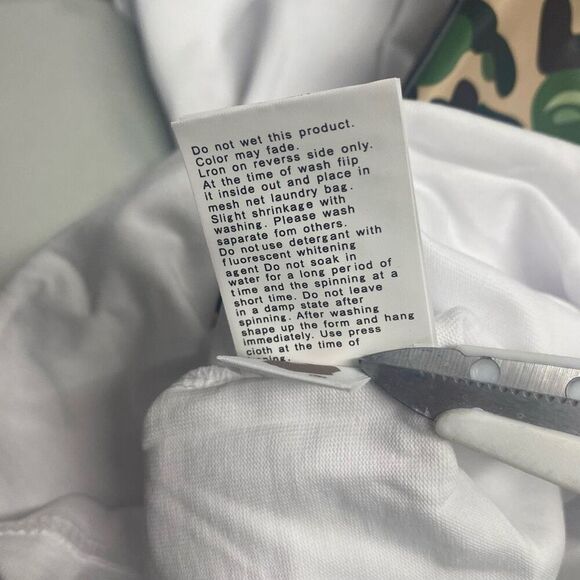 Do not wet this product.
Color may fade.
Lron on reverss side only.
At the time of wash fiip
it inside out and place in
mesh net laundry bag.
Slight shrinkage with
washing. Please wash
saparate fom others.
Do notuse detergant with
fluorescent whitening
agent Do not soak in
water for a long period of
time and the spinning at a
short time. Do not leave
in a damp state after
spinning. After washing
shape up the form and hang
immediately. Use press
cloth at the time of